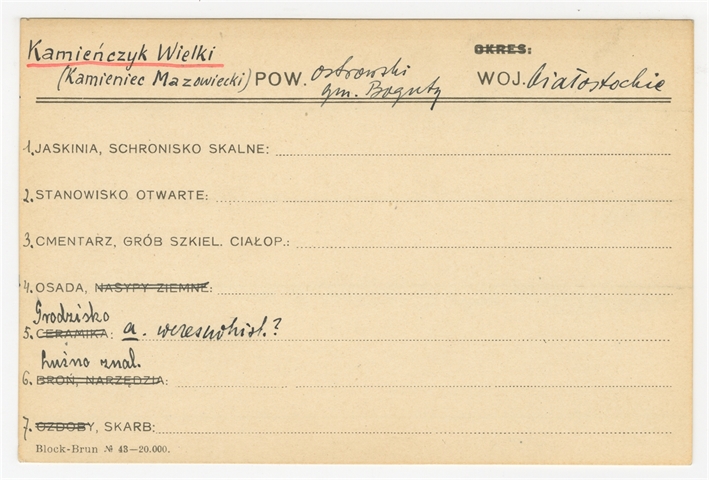 Kamieńczyk Wielki OKRES:
(Kamieniec Mazowiecki) POW. ostrowski WOJ. białostockie
gm. Boguty
1. JASKINIA, SCHRONISKO SKALNE:
2. STANOWISKO OTWARTE:
3. CMENTARZ, GRÓB SZKIEL. CIAŁOP.:
4. OSADA, NASYPY ZIEMNE:
Grodzisko
5. CERAMIKA: a. wczesnohist.?
luźno znal.
6. BROŃ, NARZĘDZIA:
7. OZDOBY, SKARB:
Block-Brun № 43—20.000.